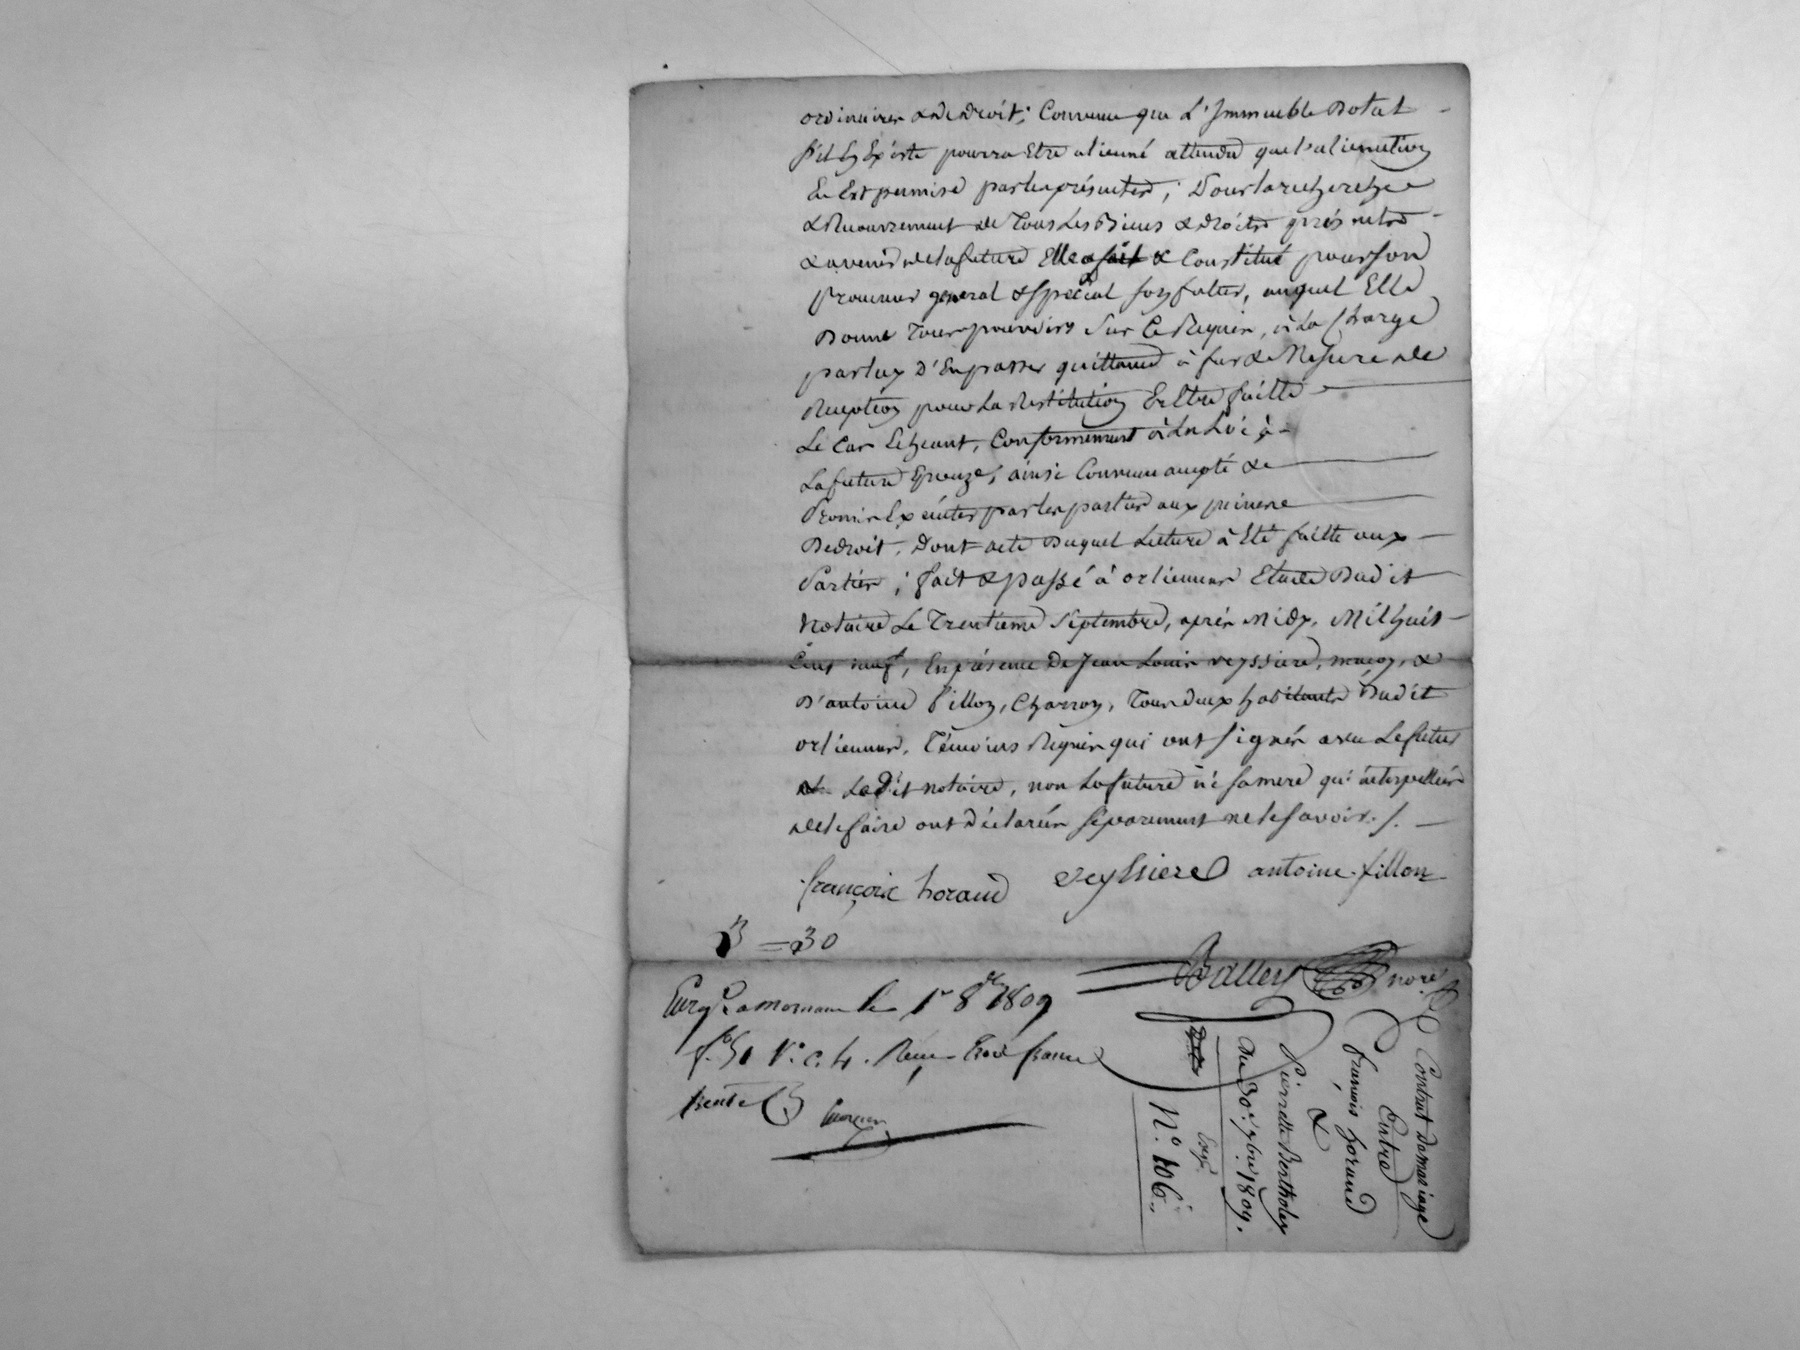 ordinaires & de droit; Convenu que L'Immeuble Dotal
s'il En Existe pourra Etre alienné attendu que l'alienation
En Est permise par les présentes; Pour la recherche
& Recouvrement de Tous Les Biens & droits présents
& avenir de la future Elle a fait & Constitué pour son
procureur general & special son futur, auquel Elle
Donne Tous pouvoirs Sur Ce Requis, à La Charge
par luy D'En passer quittance à fur & Mesure de
Reception pour La Restitution En Etre faitte
Le Cas Echeant, Conformement à La Loi à
La future Epouze; ainsi Convenu accepté &
Promis Exécuter par les parties aux peines
De droit, Dont acte Duquel Lecture à Eté faitte aux
Parties; fait & passé à orlienas Etude Dudit
Notaire Le Trentieme Septembre, après Midy, Mil huit
Cent neuf, En présence De Jean Louis veyssiere, maçon, &
D'antoine fillon, Charron, Tous deux habitants Dudit
orlienas, Témoins Requis qui ont signés avec Le futur
& Ledit notaire, non La future ni sa mere qui interpellées
de le faire ont déclarées séparement ne le savoir./.
françoix horand veyssiere antoine fillon
3 = 30
Balley nore
Enrg.é a mornant le 1er 8bre 1809
f.o 51 V.o c. 4. Reçu Trois francs
trente c
Contrat de mariage
Entre
François horand
&
Pierrette Bertholey
Du 30.e 7bre 1809.
Exp.
N.o 106